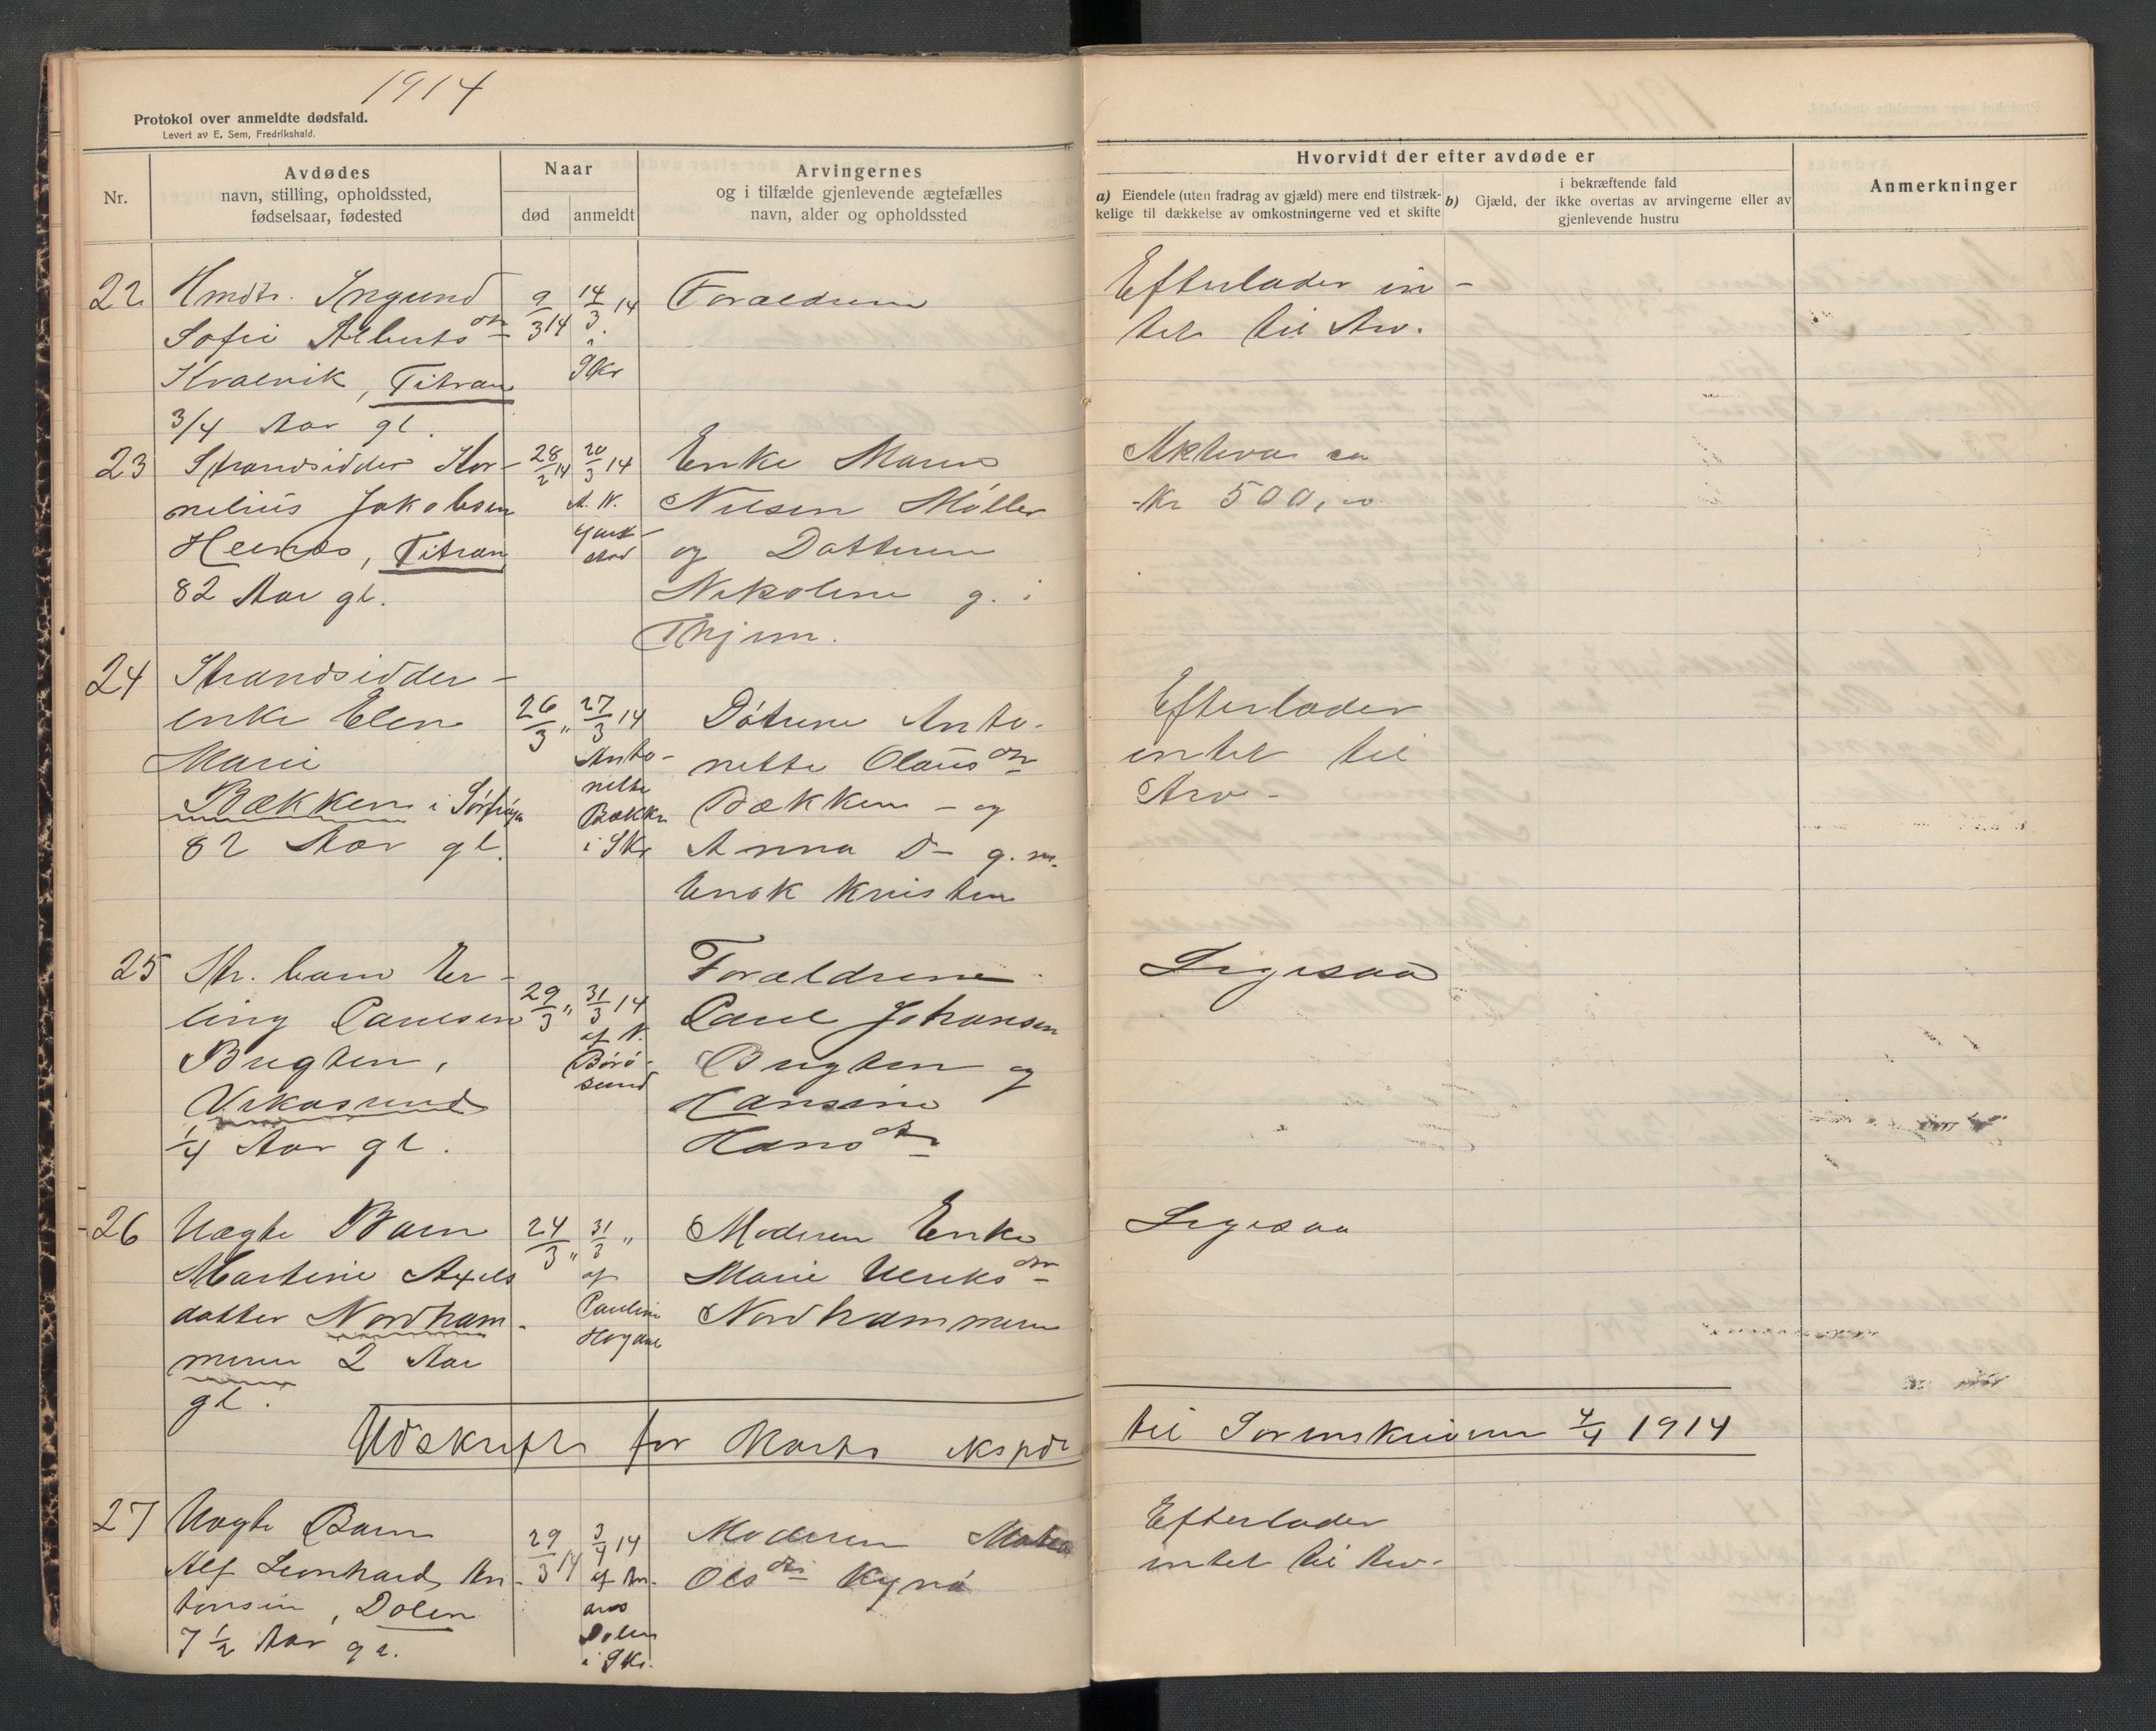 1914
Protokol over anmeldte dødsfald.
Levert av E. Sem, Fredrikshald.
Nr.
Avdødes
navn, stilling, opholdssted,
fødselsaar, fødested
Naar
død
anmeldt
Arvingernes
og i tilfælde gjenlevende ægtefælles
navn, alder og opholdssted
Hvorvidt der efter avdøde er
a) Eiendele (uten fradrag av gjæld) mere end tilstræk-
kelige til dækkelse av omkostningerne ved et skifte
i bekræftende fald
b) Gjæld, der ikke overtas av arvingerne eller av
gjenlevende hustru
Anmerkninger
22
Hmdtr. Ingund
Sofie Alberts dtr
Kvalvik, Titran
3/4 Aar gl.
9/3 14
14/3 14
i
Skr
Forældrene
Efterlader in-
tet til Arv.
23
Strandsidder Kor-
nelius Jakobsen
Heenæs, Titran
82 Aar gl.
28/2 14
20/3 14
A. N.
Enke Maren
Nilsen Møller
og Datteren
Nikoline g. i
Thjem.
Aktiva ca
Kr 500,00
24
Strandsidder-
enke Elen
Marie
Bækken i Sørfrøya
82 Aar gl.
26/3 "
27/3 14
Anto-
nette
Bække
i Skr
Døtrene Anto-
nette Olaus dtr
Bækken - og
Anna D- g. m.
Enok Kristen
Efterlader
intet til
Arv-
25
Str. barn Er-
ling Paulsen
Bugten,
Ukasund
1/4 Aar gl.
29/3 "
31/3 14
af N.
Børø-
sund
Forældrene
Paul Johansen
Bugten og
Hansine
Hans dtr
Ligesaa
26
Uægte Barn
Martine Axels
datter Nordham-
meren 2 Aar
gl.
24/3 "
31/3 "
af
Pauline
Hogdal
Moderen Enke
Marie Ulriks dtr
Nordhammeren
Ligesaa
Udskrift for Marts ekspdt
til Sorenskriveren 4/4 1914
27
Uægte Barn
Alf Leonhard An-
tonsen, Dolen
7 1/2 Aar gl.
29/3 14
3/4 14
af An-
Dolen
i Skr.
Moderen Matea
Ols dtr Kynø
Efterlader
intet til Arv.